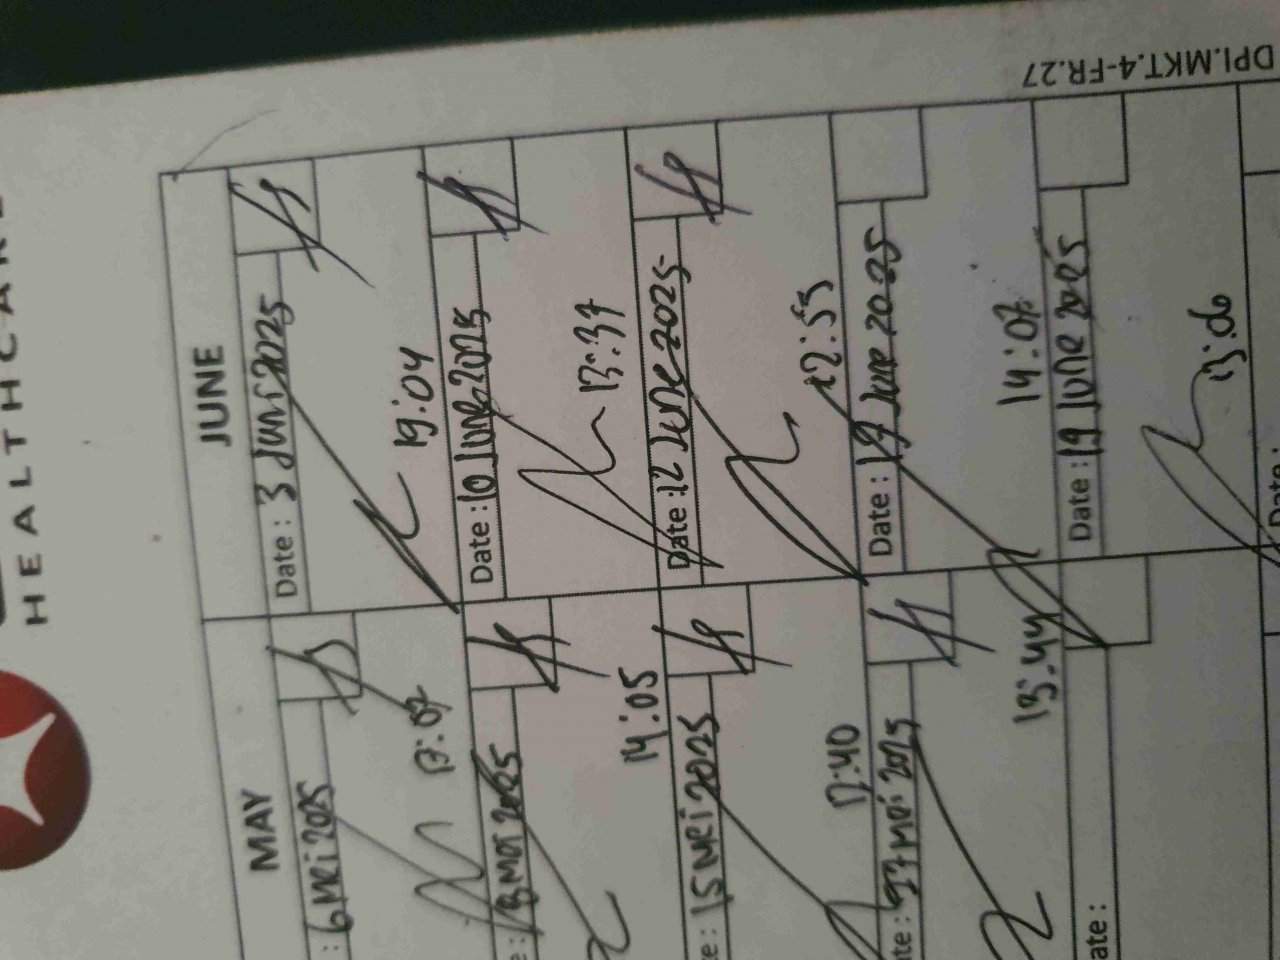 HEALTHCARE
MAY
JUNE
: 6 Mei 2025
Date : 3 Juni 2025
19:04
Mei 2025
Date : 10 June 2025
14:05
13:37
te : 15 Mei 2025
Date : 12 June 2025
:40
12:53
ate : Mei 2025
Date : June 2025
:44
14:07
ate :
Date : 19 June 2025
13:06
Date :
DPI.MKT.4-FR.27